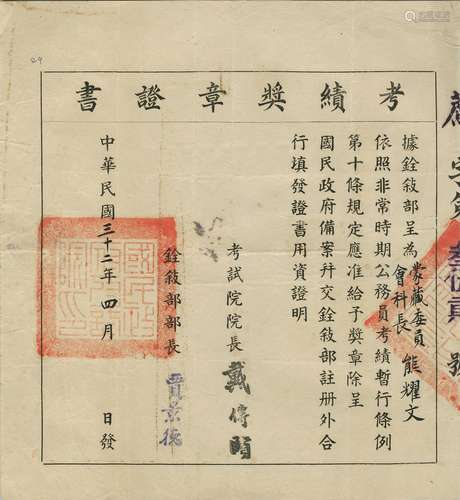 考績獎章證書
據銓敘部呈為蒙藏委員會科長熊耀文
依照非常時期公務員考績暫行條例
第十條規定應准給予獎章除呈
國民政府備案幷交銓敘部註册外合
行填發證書用資證明
考試院院長戴傳賢
銓敘部部長賈景德
中華民國三十二年四月 日發